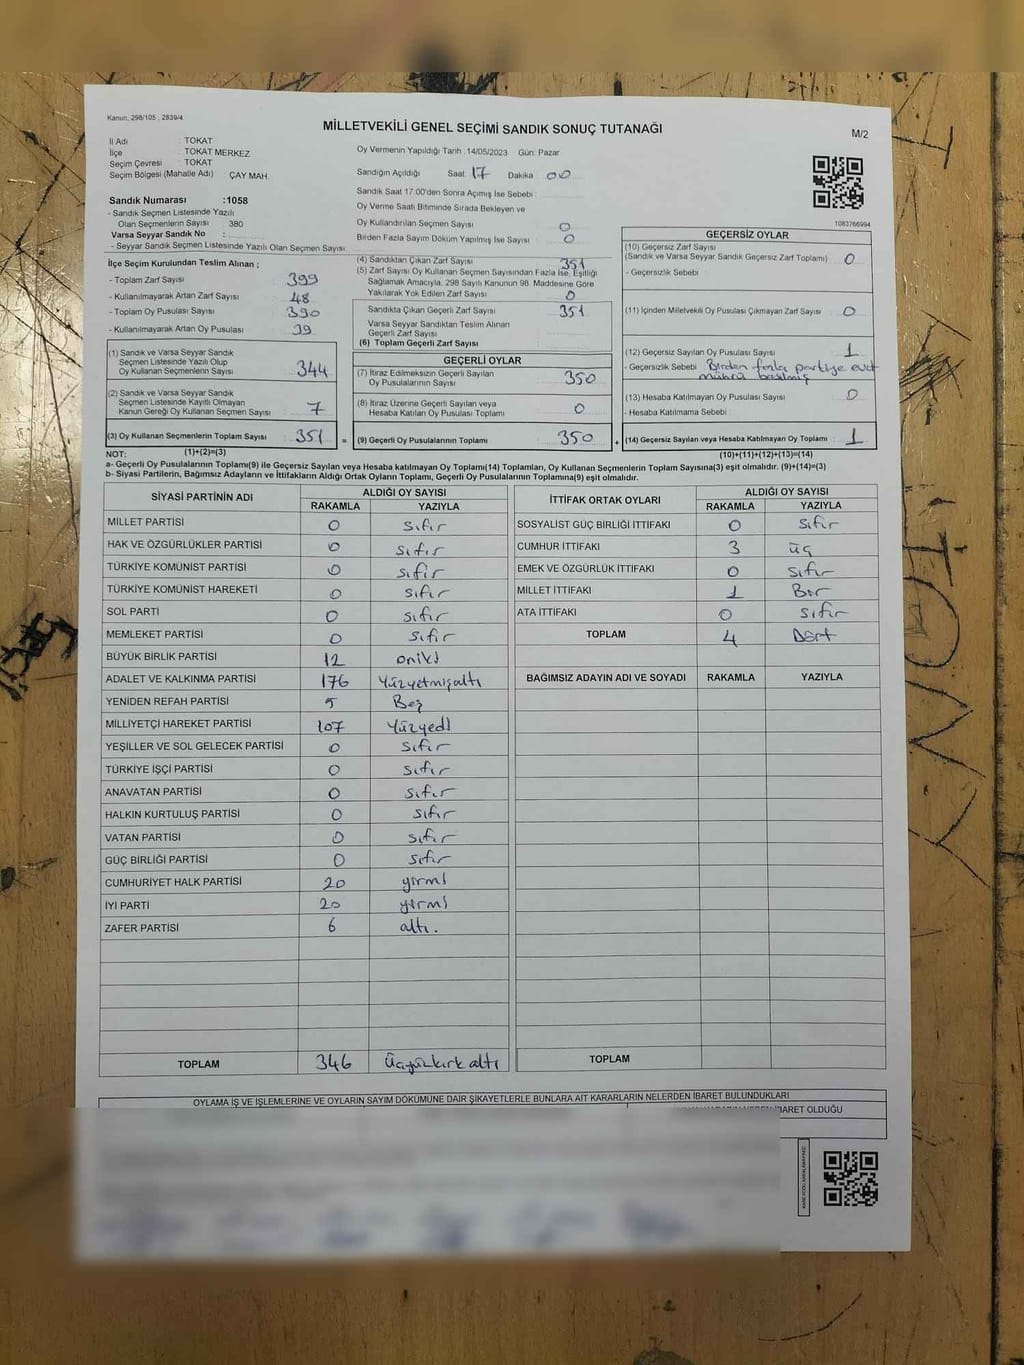 Kanun, 298/105 , 2839/4
MİLLETVEKİLİ GENEL SEÇİMİ SANDIK SONUÇ TUTANAĞI
M/2
İl Adı : TOKAT
İlçe : TOKAT MERKEZ
Seçim Çevresi : TOKAT
Seçim Bölgesi (Mahalle Adı) : ÇAY MAH.
Sandık Numarası :1058
- Sandık Seçmen Listesinde Yazılı
Olan Seçmenlerin Sayısı : 380
Varsa Seyyar Sandık No :
- Seyyar Sandık Seçmen Listesinde Yazılı Olan Seçmen Sayısı:
Oy Vermenin Yapıldığı Tarih :14/05/2023 Gün: Pazar
Sandığın Açıldığı Saat 17 Dakika 00
Sandık Saat 17:00'den Sonra Açımış İse Sebebi :
Oy Verme Saati Bitiminde Sırada Bekleyen ve
Oy Kullandırılan Seçmen Sayısı 0
Birden Fazla Sayım Döküm Yapılmış İse Sayısı 0
1083766994
İlçe Seçim Kurulundan Teslim Alınan ;
- Toplam Zarf Sayısı : 399
- Kullanılmayarak Artan Zarf Sayısı : 48
- Toplam Oy Pusulası Sayısı : 390
- Kullanılmayarak Artan Oy Pusulası : 39
(1) Sandık ve Varsa Seyyar Sandık
Seçmen Listesinde Yazılı Olup
Oy Kullanan Seçmenlerin Sayısı : 344
(2) Sandık ve Varsa Seyyar Sandık
Seçmen Listesinde Kayıtlı Olmayan
Kanun Gereği Oy Kullanan Seçmen Sayısı : 7
(3) Oy Kullanan Seçmenlerin Toplam Sayısı : 351 =
(4) Sandıktan Çıkan Zarf Sayısı : 351
(5) Zarf Sayısı Oy Kullanan Seçmen Sayısından Fazla İse, Eşitliği
Sağlamak Amacıyla, 298 Sayılı Kanunun 98. Maddesine Göre
Yakılarak Yok Edilen Zarf Sayısı : 0
Sandıkta Çıkan Geçerli Zarf Sayısı : 351
Varsa Seyyar Sandıktan Teslim Alınan
Geçerli Zarf Sayısı
(6) Toplam Geçerli Zarf Sayısı
GEÇERLİ OYLAR
(7) İtiraz Edilmeksizin Geçerli Sayılan
Oy Pusulalarının Sayısı : 350
(8) İtiraz Üzerine Geçerli Sayılan veya
Hesaba Katılan Oy Pusulası Toplamı : 0
(9) Geçerli Oy Pusulalarının Toplamı : 350 +
GEÇERSİZ OYLAR
(10) Geçersiz Zarf Sayısı
(Sandık ve Varsa Seyyar Sandık Geçersiz Zarf Toplamı) : 0
- Geçersizlik Sebebi :
(11) İçinden Milletvekili Oy Pusulası Çıkmayan Zarf Sayısı : 0
(12) Geçersiz Sayılan Oy Pusulası Sayısı : 1
- Geçersizlik Sebebi : Birden fazla partiye evet
mührü basılmış
(13) Hesaba Katılmayan Oy Pusulası Sayısı : 0
- Hesaba Katılmama Sebebi :
(14) Geçersiz Sayılan veya Hesaba Katılmayan Oy Toplamı : 1
NOT: (1)+(2)=(3)
(10)+(11)+(12)+(13)=(14)
a- Geçerli Oy Pusulalarının Toplamı(9) ile Geçersiz Sayılan veya Hesaba katılmayan Oy Toplamı(14) Toplamları, Oy Kullanan Seçmenlerin Toplam Sayısına(3) eşit olmalıdır. (9)+(14)=(3)
b- Siyasi Partilerin, Bağımsız Adayların ve İttifakların Aldığı Ortak Oyların Toplamı, Geçerli Oy Pusulalarının Toplamına(9) eşit olmalıdır.
SİYASİ PARTİNİN ADI ALDIĞI OY SAYISI
RAKAMLA YAZIYLA
MİLLET PARTİSİ 0 sıfır
HAK VE ÖZGÜRLÜKLER PARTİSİ 0 sıfır
TÜRKİYE KOMÜNİST PARTİSİ 0 sıfır
TÜRKİYE KOMÜNİST HAREKETİ 0 sıfır
SOL PARTİ 0 sıfır
MEMLEKET PARTİSİ 0 sıfır
BÜYÜK BİRLİK PARTİSİ 12 oniki
ADALET VE KALKINMA PARTİSİ 176 Yüzyetmişaltı
YENİDEN REFAH PARTİSİ 5 Beş
MİLLİYETÇİ HAREKET PARTİSİ 107 Yüzyedi
YEŞİLLER VE SOL GELECEK PARTİSİ 0 sıfır
TÜRKİYE İŞÇİ PARTİSİ 0 sıfır
ANAVATAN PARTİSİ 0 sıfır
HALKIN KURTULUŞ PARTİSİ 0 sıfır
VATAN PARTİSİ 0 sıfır
GÜÇ BİRLİĞİ PARTİSİ 0 sıfır
CUMHURİYET HALK PARTİSİ 20 yirmi
İYİ PARTİ 20 yirmi
ZAFER PARTİSİ 6 altı.
TOPLAM 346 Üçyüzkırkaltı
İTTİFAK ORTAK OYLARI ALDIĞI OY SAYISI
RAKAMLA YAZIYLA
SOSYALİST GÜÇ BİRLİĞİ İTTİFAKI 0 sıfır
CUMHUR İTTİFAKI 3 üç
EMEK VE ÖZGÜRLÜK İTTİFAKI 0 sıfır
MİLLET İTTİFAKI 1 Bir
ATA İTTİFAKI 0 sıfır
TOPLAM 4 Dört
BAĞIMSIZ ADAYIN ADI VE SOYADI RAKAMLA YAZIYLA
TOPLAM
OYLAMA İŞ VE İŞLEMLERİNE VE OYLARIN SAYIM DÖKÜMÜNE DAİR ŞİKAYETLERLE BUNLARA AİT KARARLARIN NELERDEN İBARET BULUNDUKLARI
İBARET OLDUĞU